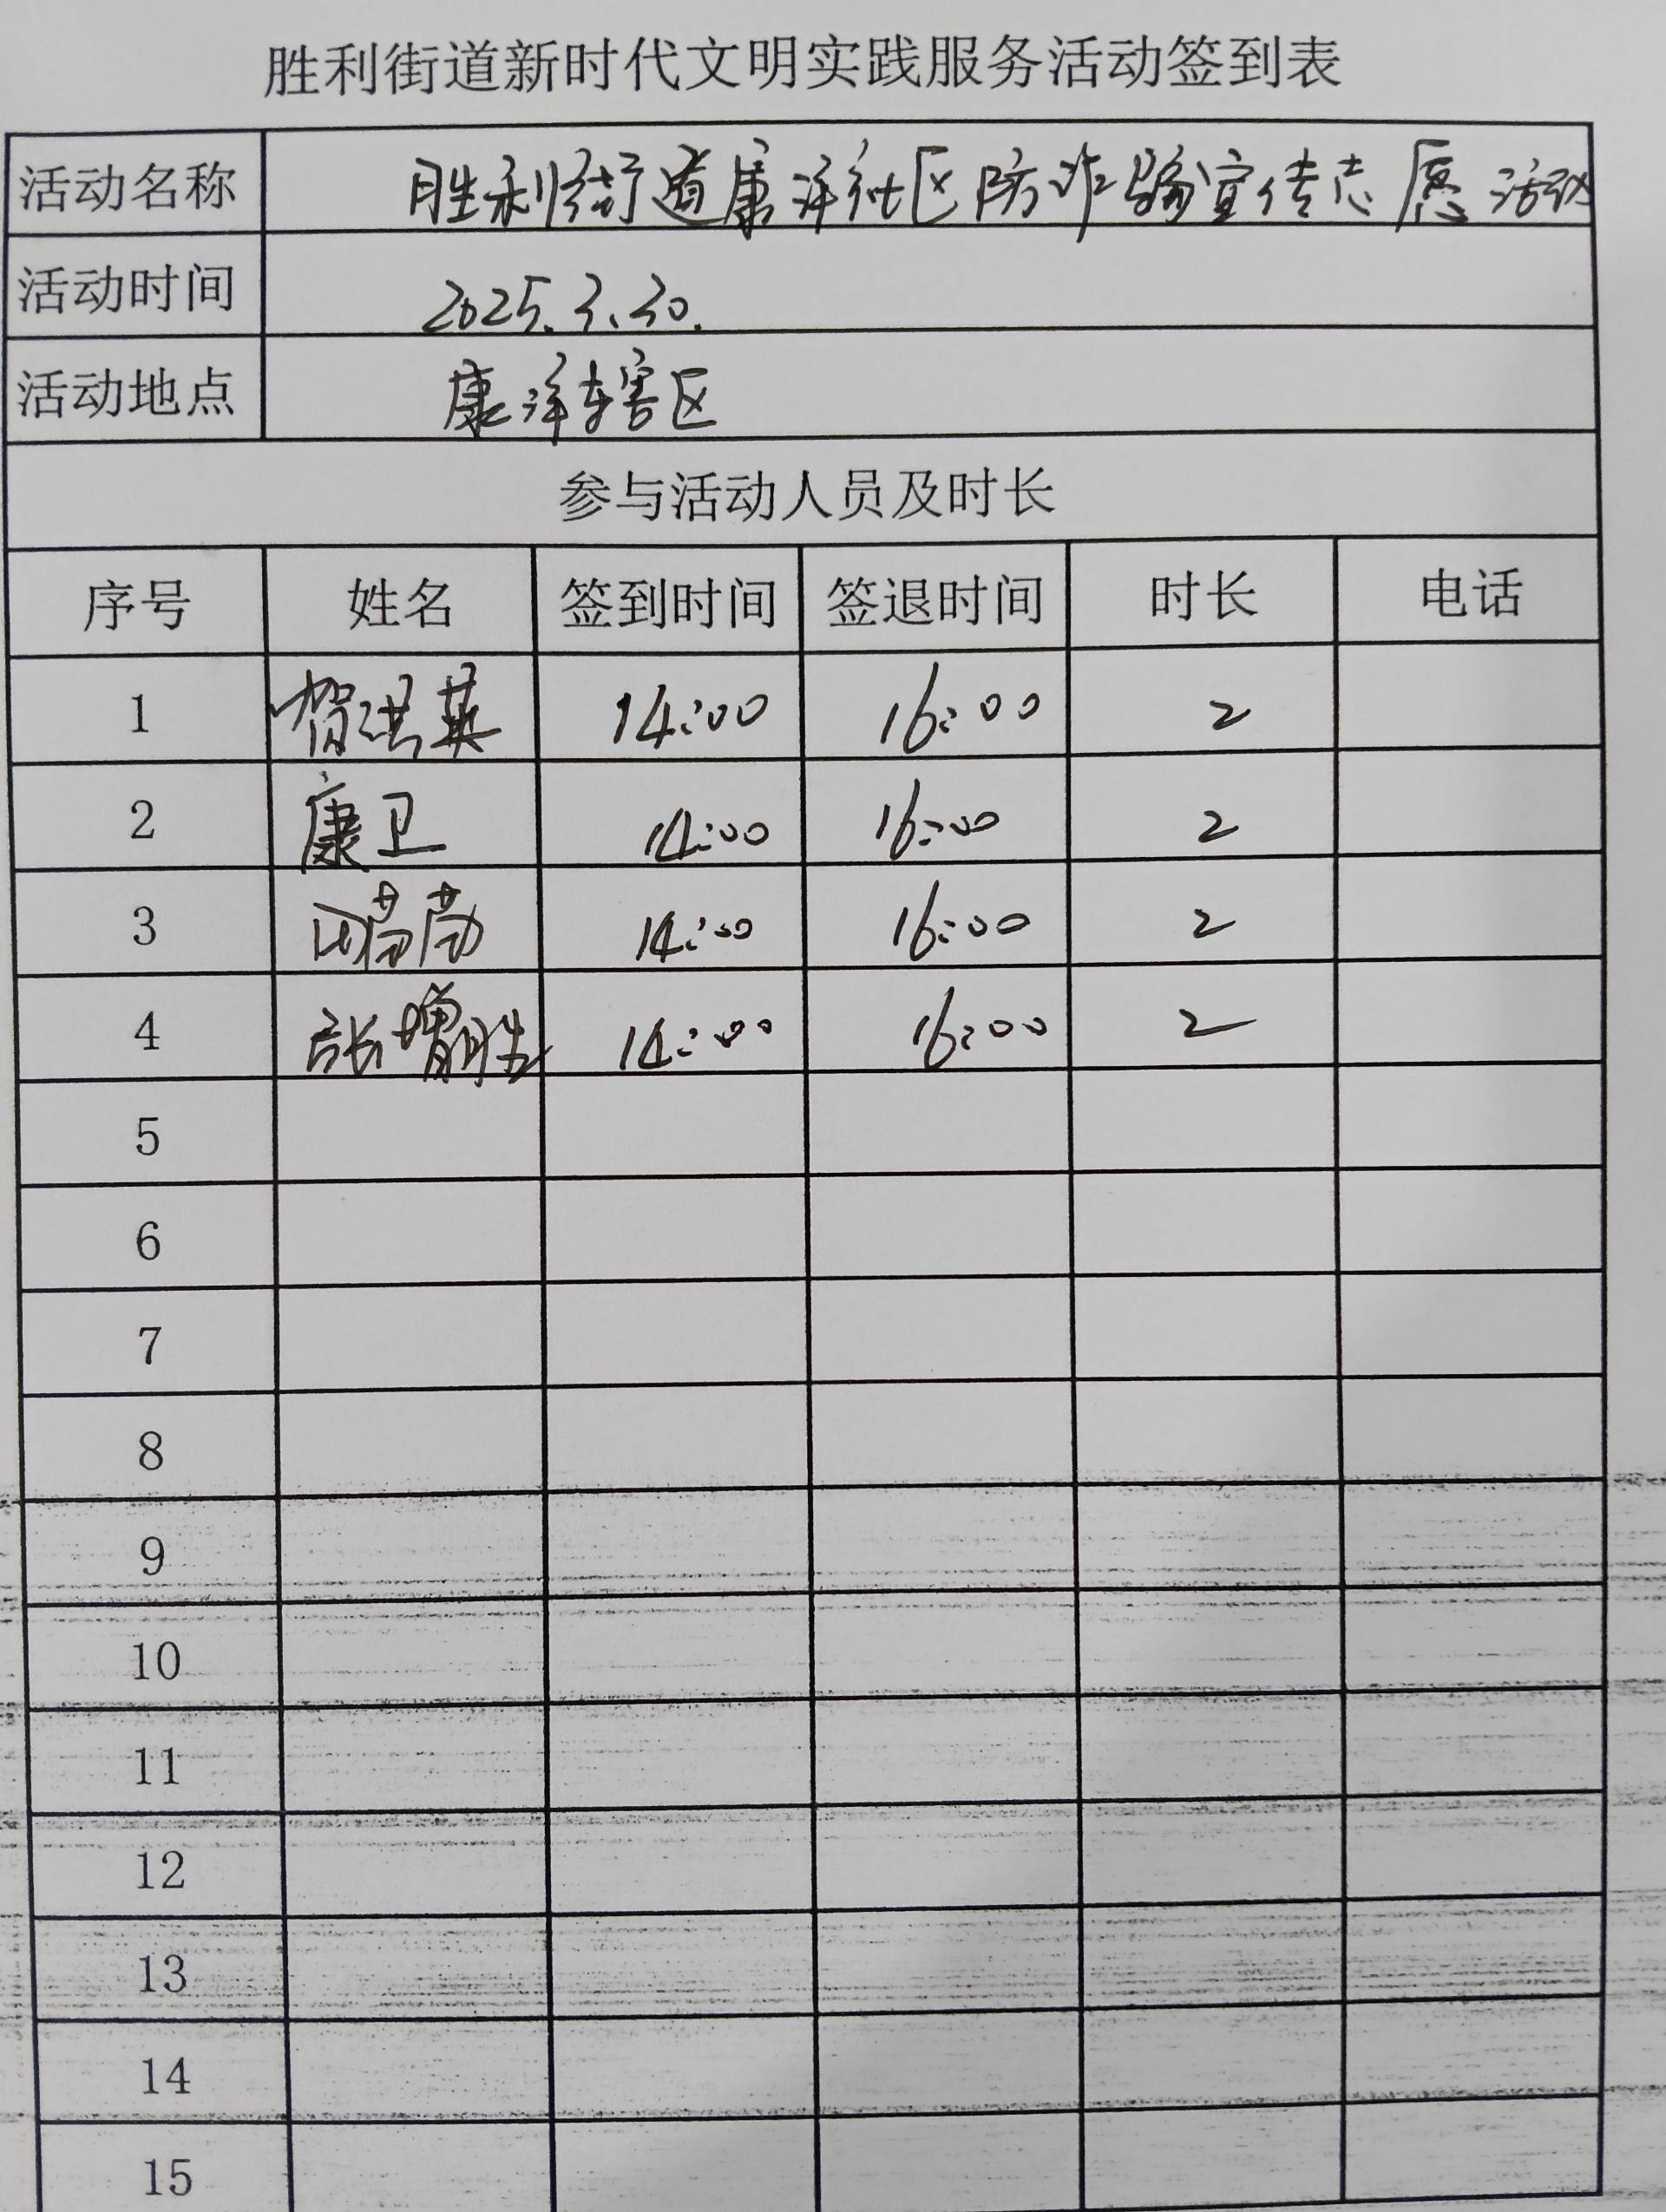 胜利街道新时代文明实践服务活动签到表
活动名称 胜利街道康洋社区防诈骗宣传志愿活动
活动时间 2025.3.30.
活动地点 康洋辖区
参与活动人员及时长
序号 姓名 签到时间 签退时间 时长 电话
1 贺洪英 14:00 16:00 2
2 康卫 14:00 16:00 2
3 14:00 16:00 2
4 张增胜 14:00 16:00 2
5
6
7
8
9
10
11
12
13
14
15